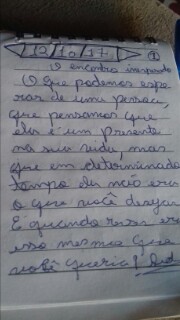 12/10/17 1
O encontro inesperado
O que podemos espe
rar de uma pessoa,
que pensamos que
ela é um presente
na sua vida, mas
que em determinado
tempo ela não era
o que você deseja
E quando essa era
isso mesmo que
você queria!